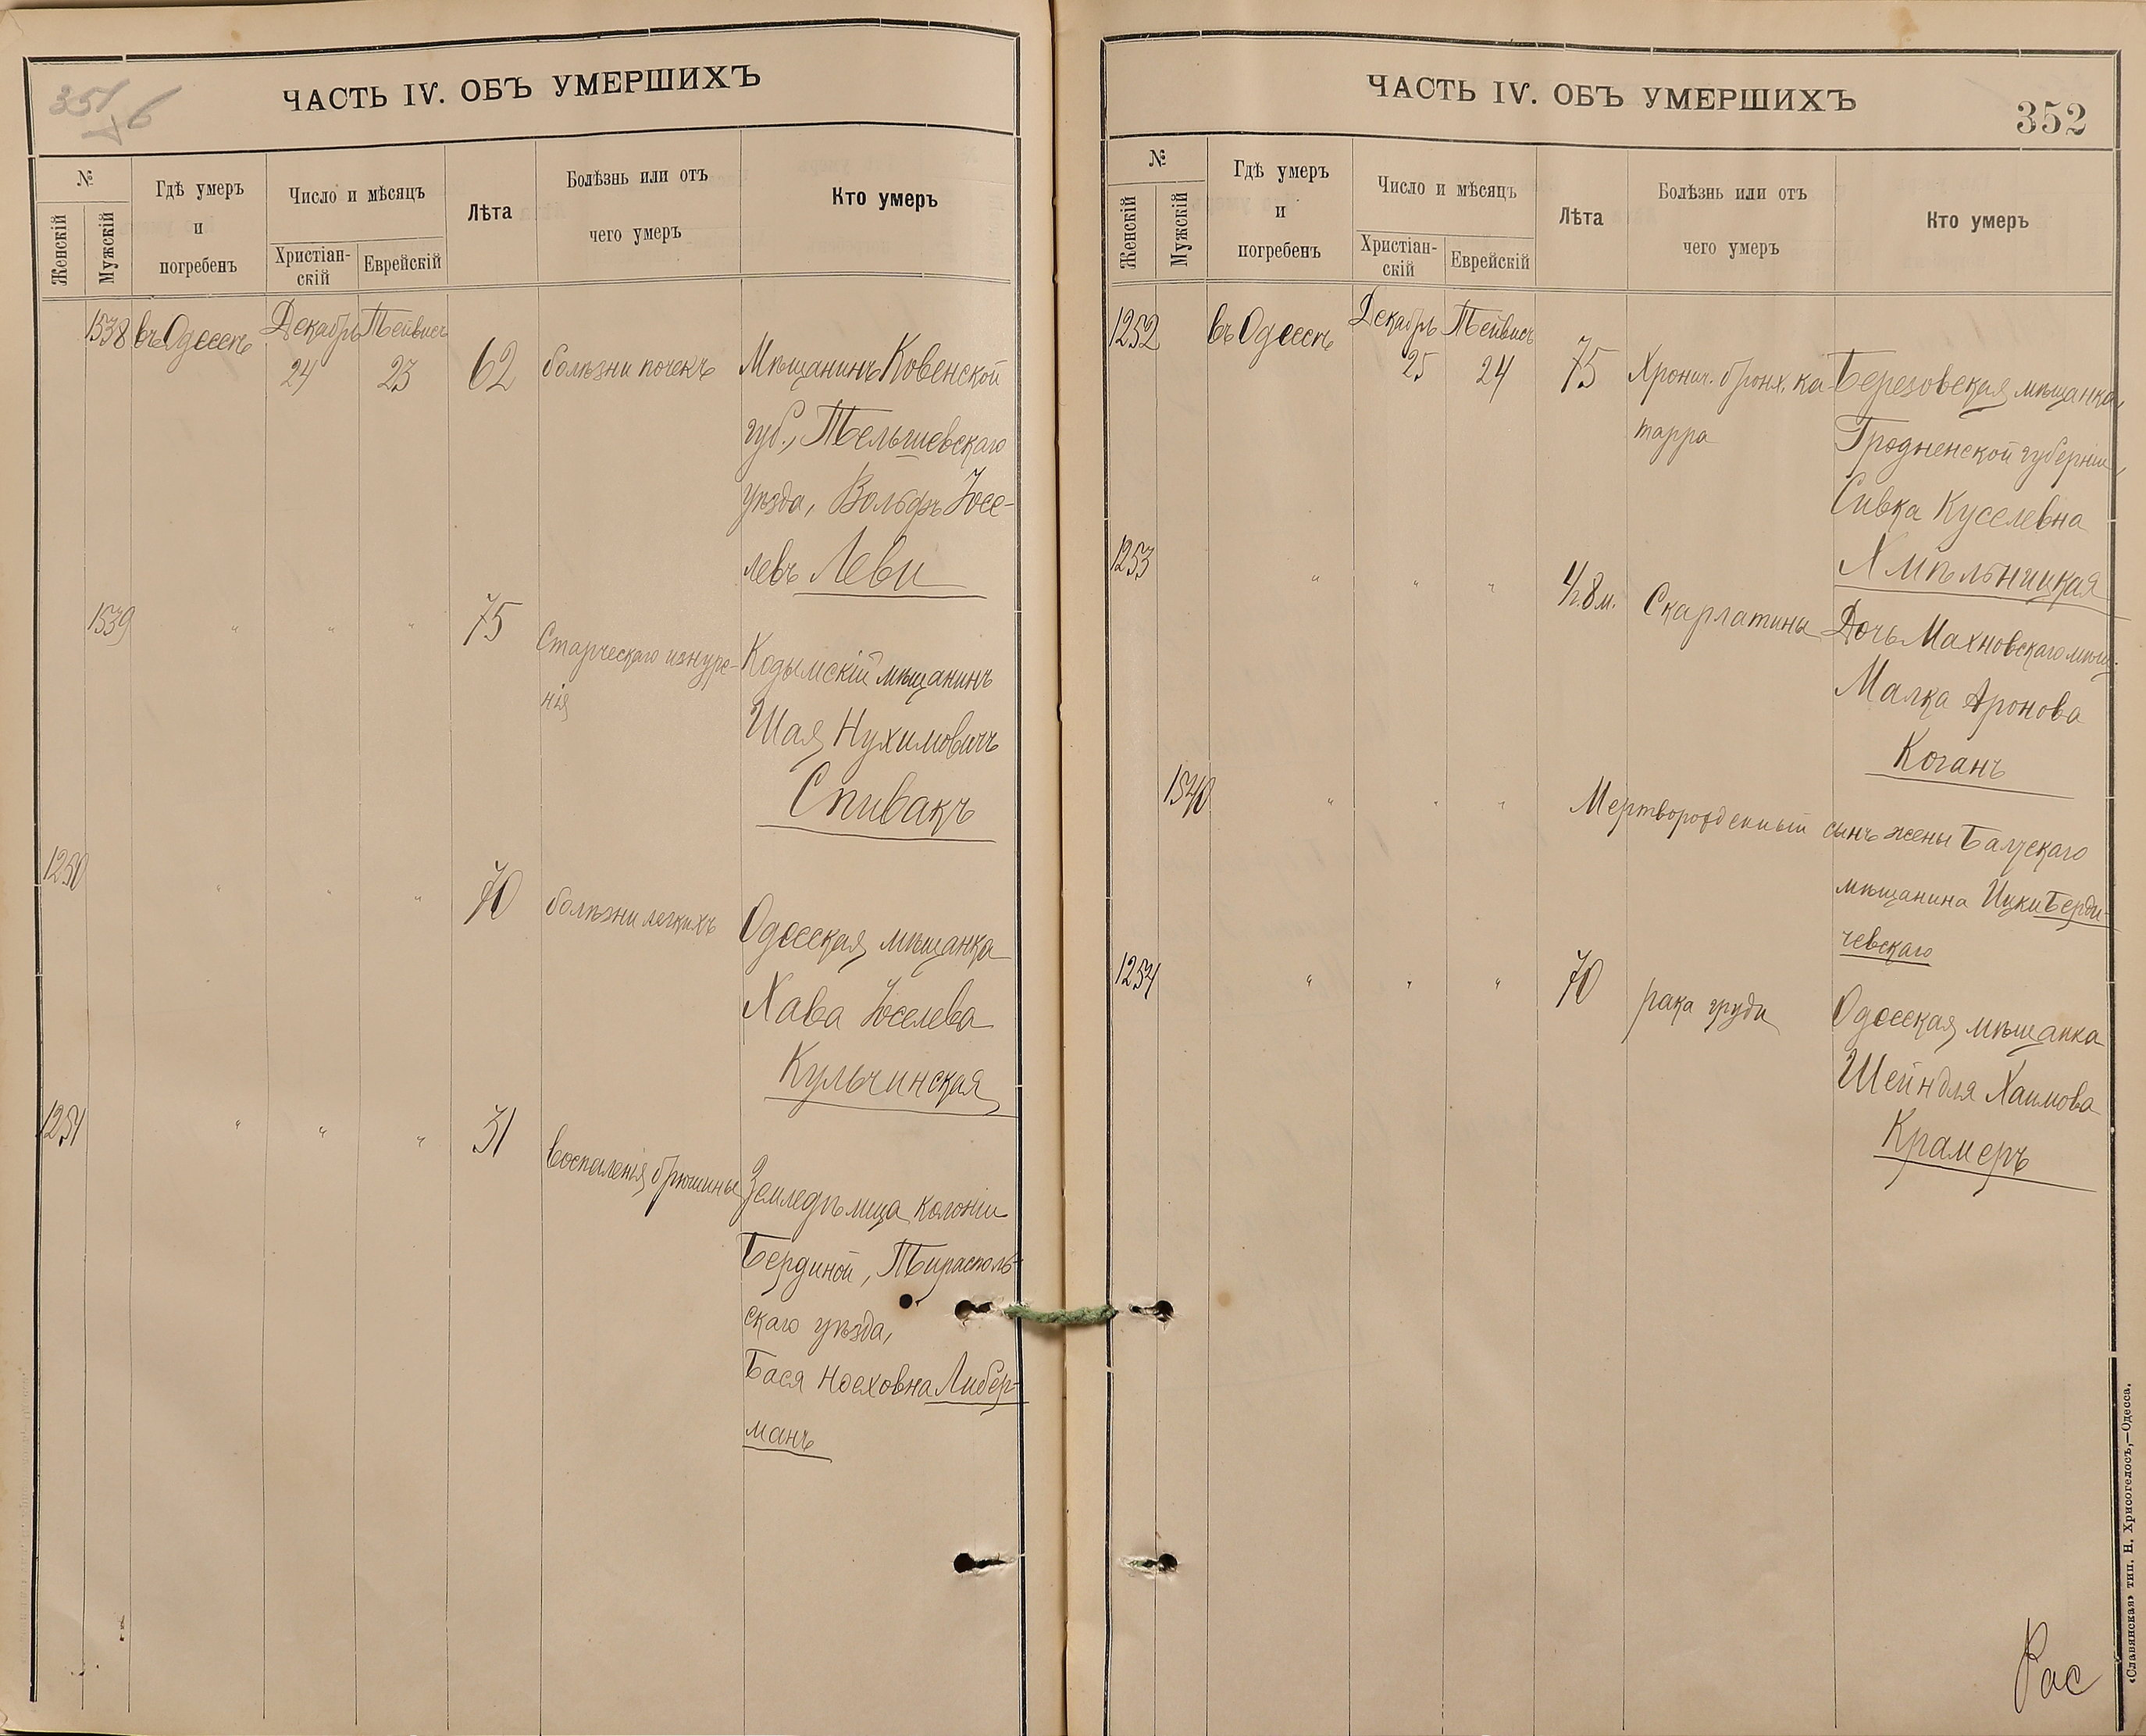 351
ЧАСТЬ IV. ОБЪ УМЕРШИХЪ
№
Женскій
Мужскій
Гдѣ умеръ
и
погребенъ
Число и мѣсяцъ
Христіан-
скій
Еврейскій
Лѣта
Болѣзнь или отъ
чего умеръ
Кто умеръ
1538 въ Одессѣ Декабрь Тейвисъ
24 23 62 болѣзни почекъ Мѣщанинъ Ковенской
губ., Тельшевскаго
уѣзда, Вольфъ Іосе-
левъ Леви
1539 " " " 75 Старческаго изнуре-
нія
Кодымскій мѣщанинъ
Шая Нухимовичъ
Спивакъ
1250 " " " 70 болѣзни легкихъ Одесская мѣщанка
Хава Іоселева
Кульчинская
1251 " " " 31 воспаленія брюшины Земледѣлица колоніи
Бердиной, Тирасполь-
скаго уѣзда,
Бася Ноеховна Либер-
манъ
ЧАСТЬ IV. ОБЪ УМЕРШИХЪ
352
№
Женскій
Мужскій
Гдѣ умеръ
и
погребенъ
Число и мѣсяцъ
Христіан-
скій
Еврейскій
Лѣта
Болѣзнь или отъ
чего умеръ
Кто умеръ
1252 въ Одессѣ Декабрь Тейвисъ
25 24 75 Хронич. бронх. ка-
тарра
Березовская мѣщанка,
Гродненской губерніи,
Сивка Куселевна
Хмѣльницкая
1253 " " " 8 м. Скарлатины Дочь Махновскаго мѣщ.
Малка Аронова
Коганъ
1540 " " " Мертворожденный сынъ жены Балтскаго
мѣщанина Ицки Берди-
чевскаго
1254 " " " 70 рака груди Одесская мѣщанка
Шейндля Хаимова
Крамеръ
Рас
«Славянская» тип. Н. Хрисогелосъ,—Одесса.